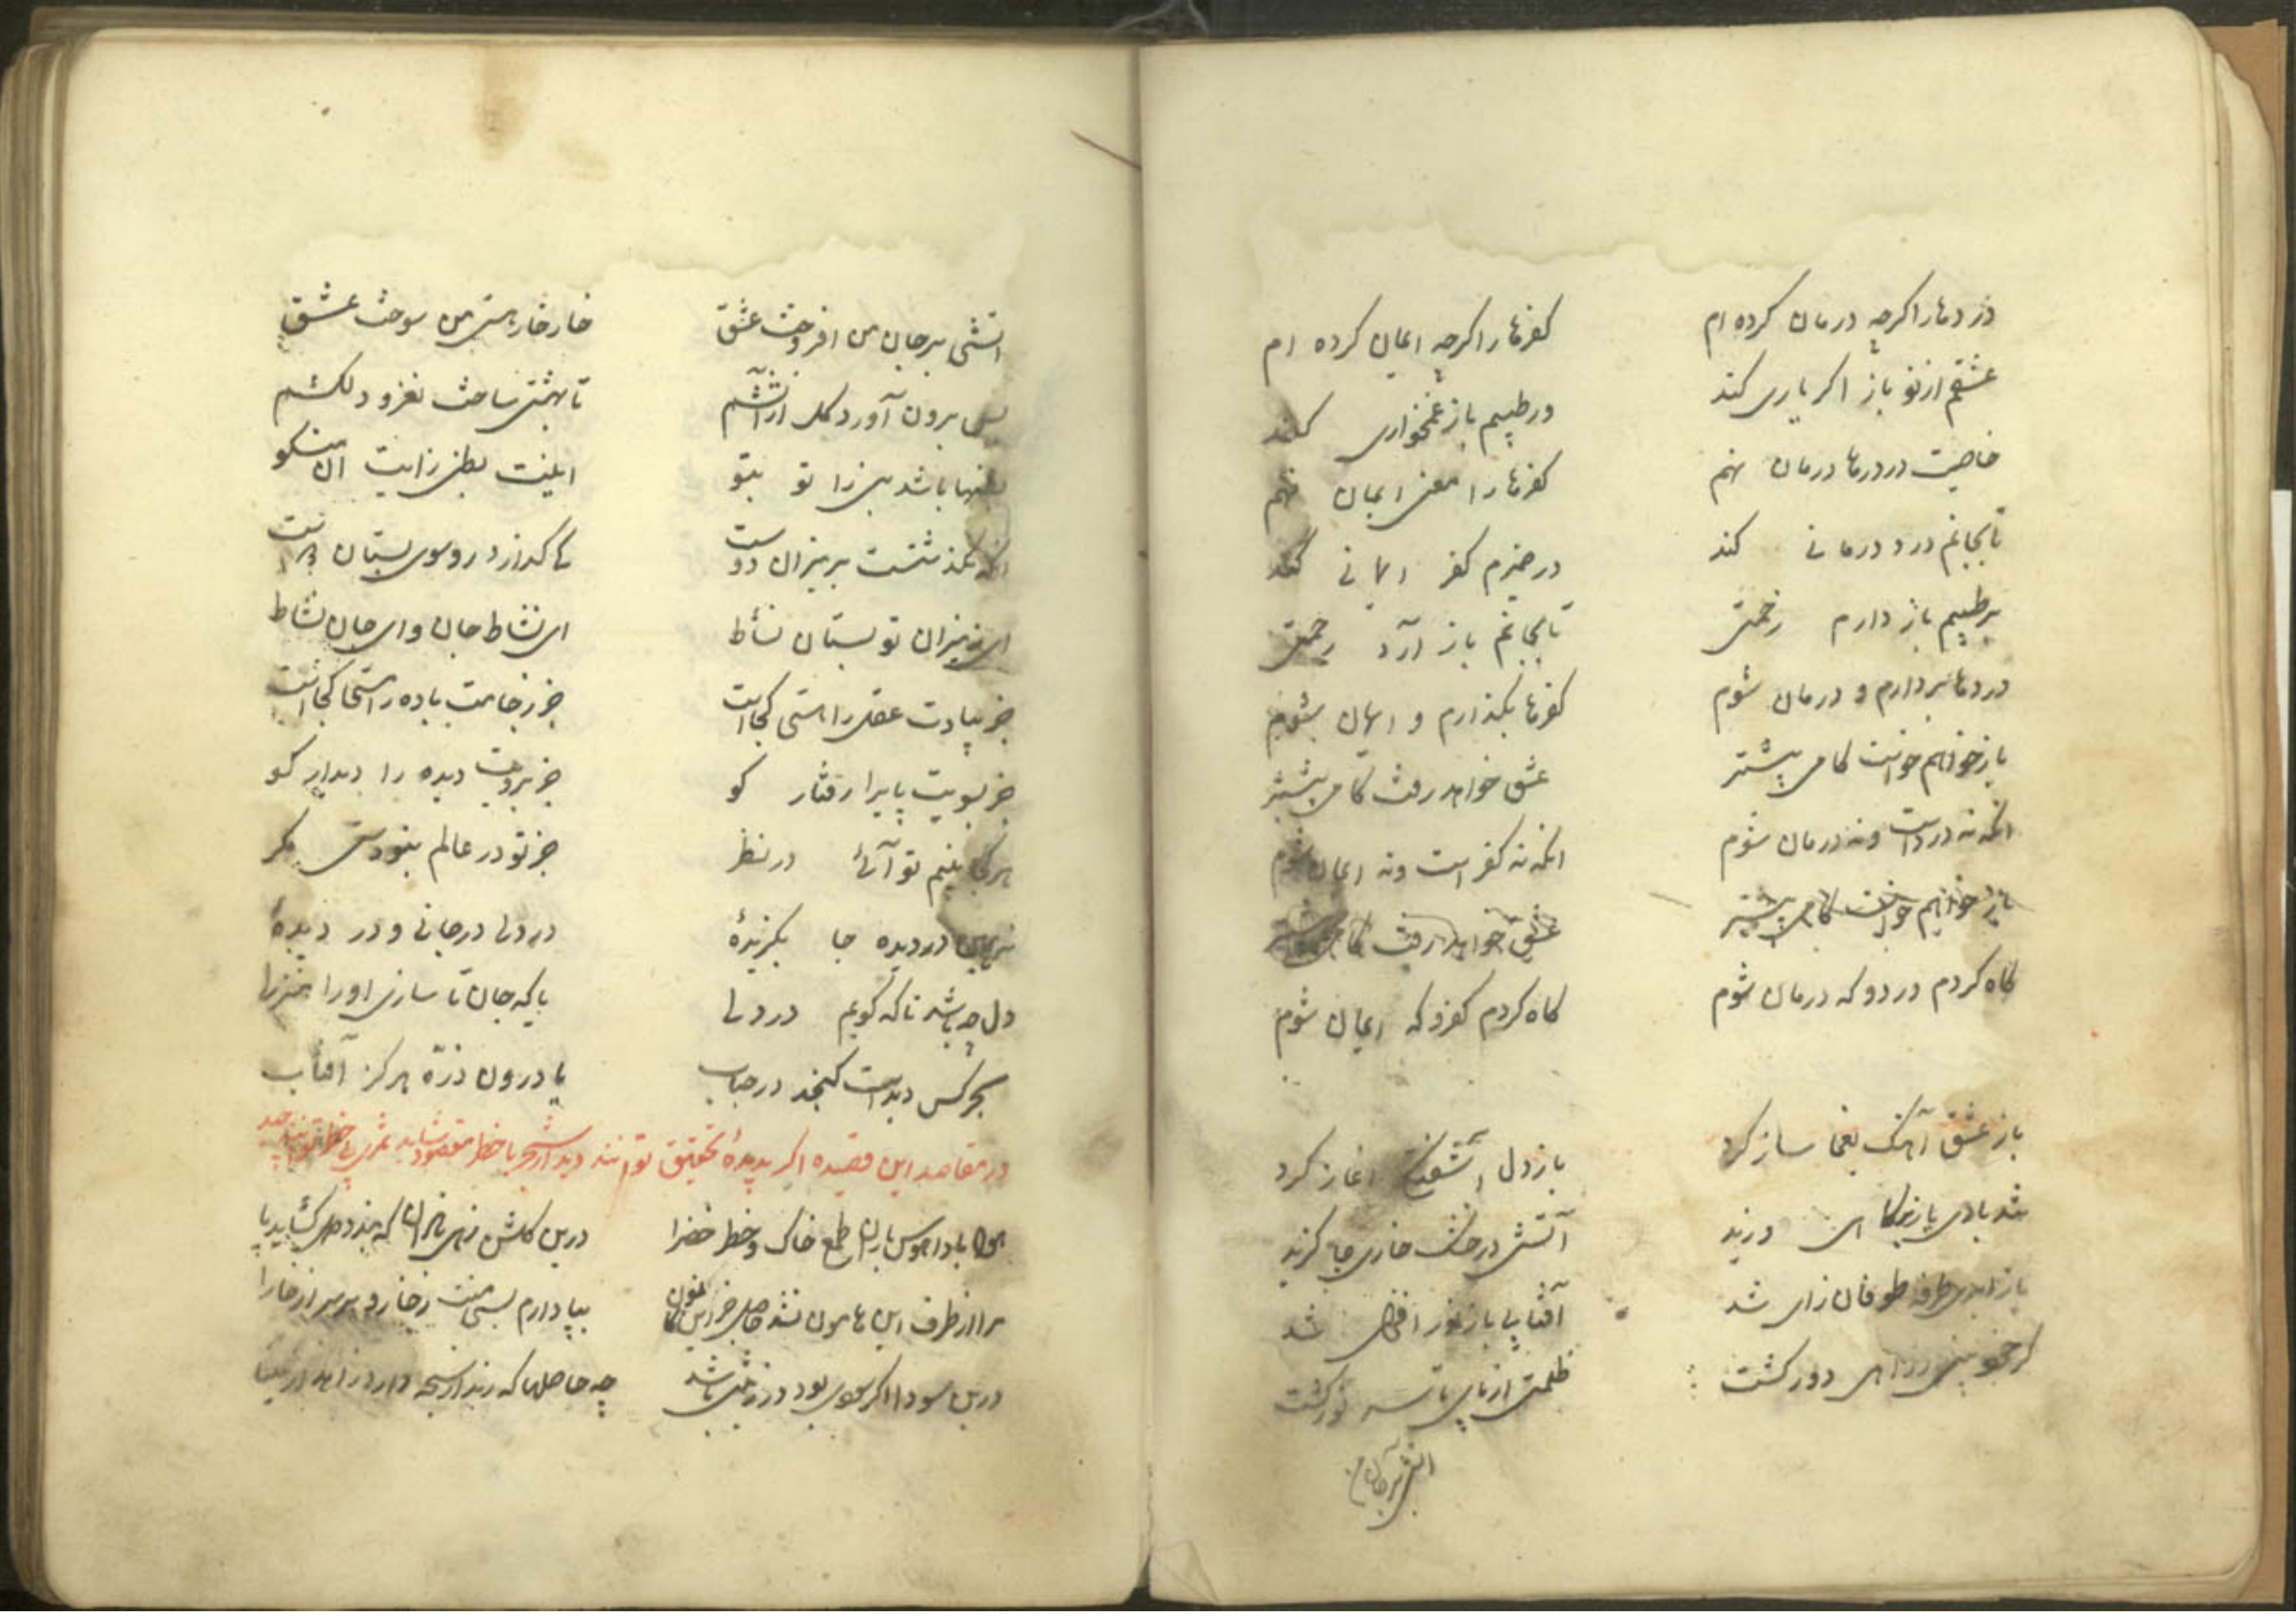 دردها را اکرچه درمان کرده ام کفرها را اکرچه ایمان کرده ام
عشقم از نو باز اکر یاری کند ور طبیبم باز غمخواری کند
خاصیت در دردها درمان نهم کفرها را معنی ایمان نهم
تا بجانم درد درمانی کند در ضمیرم کفر ایمانی کند
بر طبیبم باز دارم زحمتی تا بجانم باز آرد رحمتی
دردها بردارم و درمان شوم کفرها بکذارم و ایمان شوم
باز خواهم خواست کامی بیشتر عشق خواهد رفت کامی بیشتر
انکه نه درد است ونه درمان شوم انکه نه کفر است ونه ایمان شوم
باز خواهم خواست کامی بیشتر عشق خواهد رفت کامی
کاه کردم درد و که درمان شوم کاه کردم کفر و که ایمان شوم
باز عشق آهنک یغما ساز کرد باز دل آشفتگی اغاز کرد
شد بادی بار وزید آتشی در خشک خاری جا کزید
باز ابری طرفه طوفان زای شد آفتابی باز نور افزای شد
دور کشت ظلمتی از پای تا سر نور کشت
اتشی بر جان من
اتشی بر جان من افروخت عشق خار خار هستی من سوخت عشق
پس برون آورد کل از آتشم تا بهشتی ساخت نغز و دلکشم
باشد بی زا تو بتو
انکه بکذشتست بر میزان دوست کی کذارد روسوی بستان
ای ز میزان تو بستان نشاط ای نشاط جان و ای جان نشاط
جز بیادت عقل را مستی کجاست جز ز جامت باده را مستی کجاست
جز بسویت پای را رفتار کو جز برویت دیده را دیدار کو
هر کجا بینم تو آئی در نظر جز تو در عالم نبودستی مکر
در دیده جا بکزیدهٔ در دلی در جانی و در دیدهٔ
دل چه باشد تا که کویم در دلی یا که جان تا سازی او را منزلی
بحر کس دیدست کنجد در حباب یا درون ذره هرکز آفتاب
در مقاصد این قصیده اکر بدیدهٔ تحقیق توانند دید از شجر با خطر مقصود شاید ثمری بی خطر توانند چید
هوا باد و هوس باران طمع خاک و خطر خضرا درین کلشن زهی نادان که بندد دل کشاید پا
مرا از طرف این هامون نشد حاصل جز این بپا دارم بسی منت ز خار و بر سر از خارا
درین سودا اکر سودی بود در زیان باشد چه حاصلها که رند از سبحه دارد زاهد از مینا